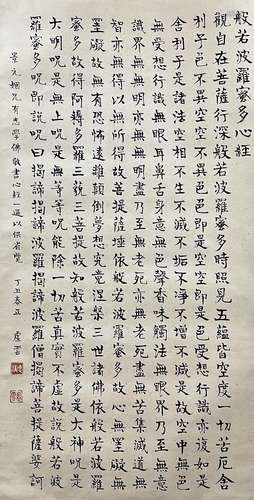 般若波羅蜜多心經
觀自在菩薩行深般若波羅蜜多時照見五蘊皆空度一切苦厄舍
利子色不異空空不異色色即是空空即是色受想行識亦復如是
舍利子是諸法空相不生不滅不垢不淨不增不減是故空中無色
無受想行識無眼耳鼻舌身意無色聲香味觸法無眼界乃至無意
識界無無明亦無無明盡乃至無老死亦無老死盡無苦集滅道無
智亦無得以無所得故菩提薩埵依般若波羅蜜多故心無罣礙無
罣礙故無有恐怖遠離顛倒夢想究竟涅槃三世諸佛依般若波羅
蜜多故得阿耨多羅三藐三菩提故知般若波羅蜜多是大神咒是
大明咒是無上咒是無等等咒能除一切苦真實不虛故說般若波
羅蜜多咒即說咒曰揭諦揭諦波羅揭諦波羅僧揭諦菩提薩婆訶
景元姻兄有志學佛敬書心經一通以供省覽 丁丑春正 虛雲